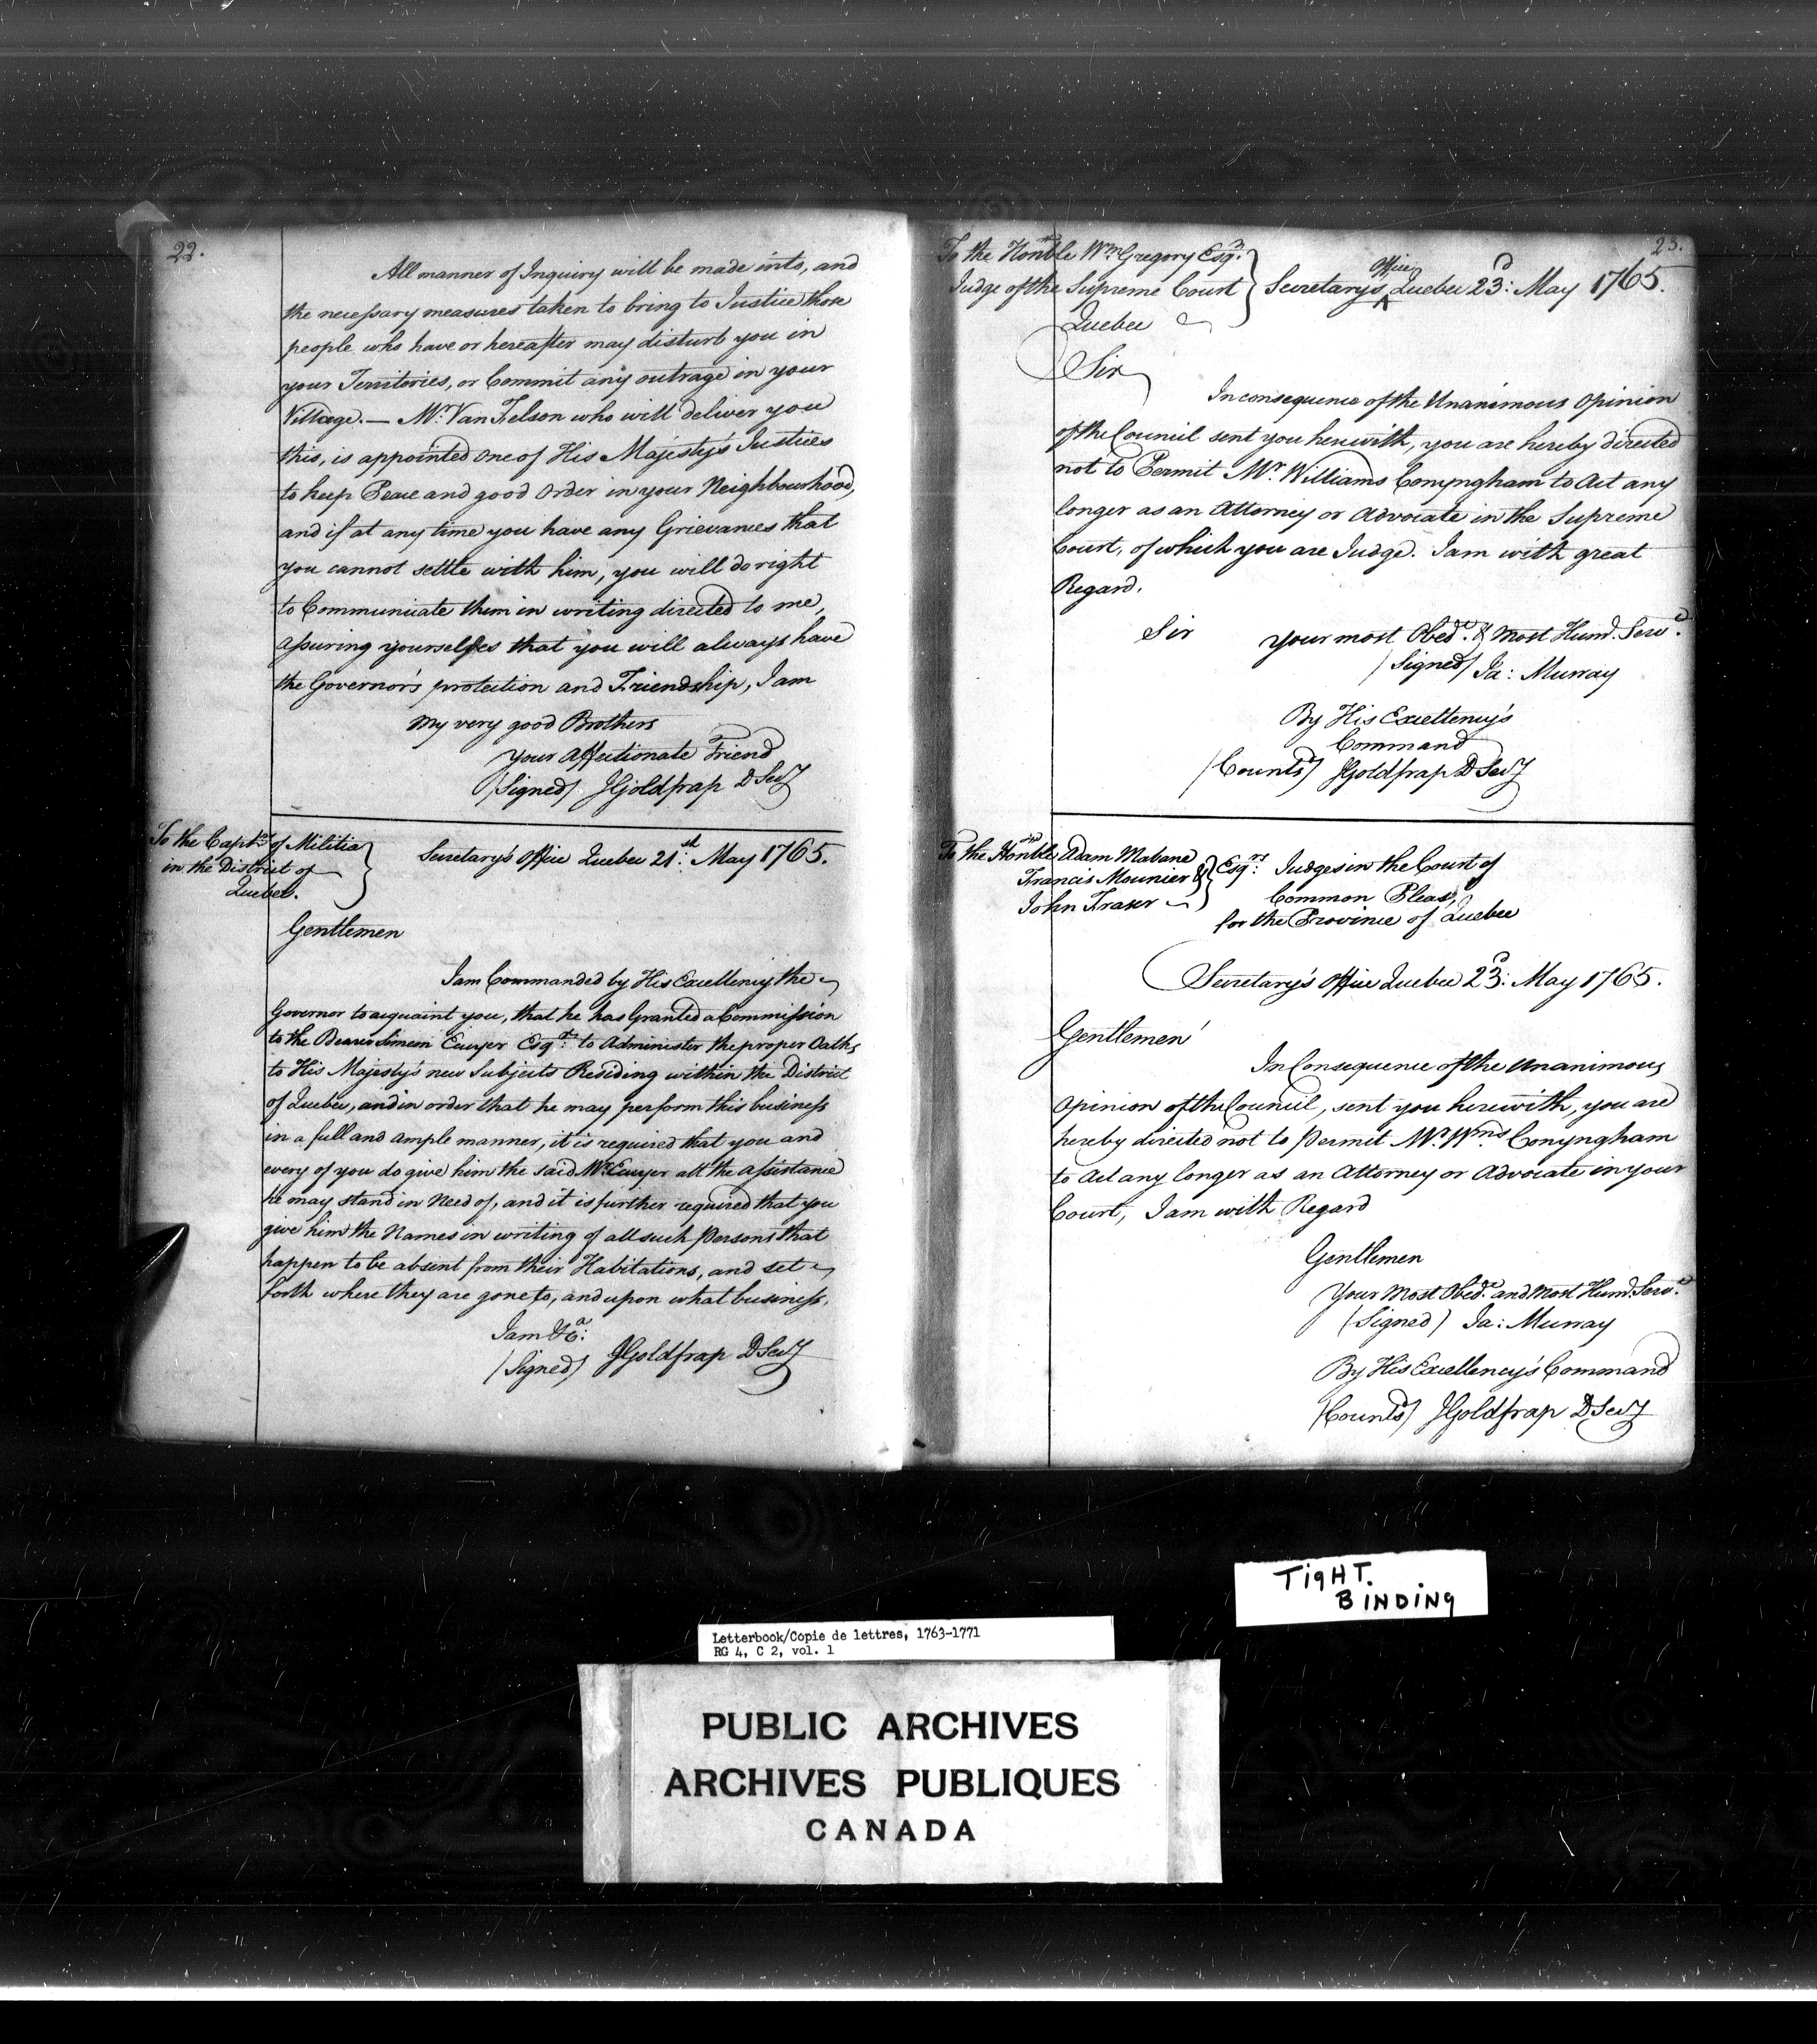 22.
All manner of Inquiry will be made into, and
the necessary measures taken to bring to Justice those
people who have or hereafter may disturb you in
your Territories, or Commit any outrage in your
Village. — Mr. Van Felson who will deliver you
this, is appointed one of His Majesty's Justices
to keep Peace and good Order in your Neighbourhood,
and if at any time you have any Grievances that
you cannot settle with him, you will do right
to Communicate them in writing directed to me,
assuring yourselfes that you will always have
the Governor's protection and Friendship, I am
My very good Brothers
Your Affectionate Friend
(Signed) JGoldfrap D Secy
To the Capts. of Militia
in the District of
Quebec.
Secretary's Office Quebec 21st. May 1765.
Gentlemen
I am Commanded by His Excellency the
Governor to acquaint you, that he has Granted a Commission
to the Bearer Simeon Ecuyer Esqr. to Administer the proper Oaths
to His Majesty's new Subjects Residing within the District
of Quebec, and in order that he may perform this business
in a full and ample manner, it is required that you and
every of you do give him the said Mr. Ecuyer all the assistance
he may stand in Need of, and it is further required that you
give him the Names in writing of all such Persons that
happen to be absent from their Habitations, and set
forth where they are gone to, and upon what business.
I am &ca:
(Signed) JGoldfrap D Secy
23.
To the Honble Wm Gregory Esqr.
Judge of the Supreme Court
Quebec
Secretary's Office Quebec 23d: May 1765.
Sir
In consequence of the Unanimous Opinion
of the Council sent you herewith, you are hereby directed
not to Permit Mr. Williams Conyngham to Act any
longer as an Attorney or Advocate in the Supreme
Court, of which you are Judge. I am with great
Regard.
Sir your most Obedt. & most Humd. Servt.
(Signed) Ja: Murray
By His Excellency's
Command
(Countd) JGoldfrap D Secy
To the Honble Adam Mabane
Francis Mounier &
John Fraser
Esqrs: Judges in the Court of
Common Pleas,
for the Province of Quebec
Secretary's Office Quebec 23d: May 1765.
Gentlemen
In Consequence of the Unanimous
Opinion of the Council, sent you herewith, you are
hereby directed not to Permit Mr. Wms Conyngham
to Act any longer as an Attorney or Advocate in your
Court, I am with Regard
Gentlemen
Your Most Obedt. and most Humd. Servt.
(Signed) Ja: Murray
By His Excellency's Command
(Countd) JGoldfrap D Secy
TIGHT.
BINDING
Letterbook/Copie de lettres, 1763-1771
RG 4, C 2, vol. 1
PUBLIC ARCHIVES
ARCHIVES PUBLIQUES
CANADA